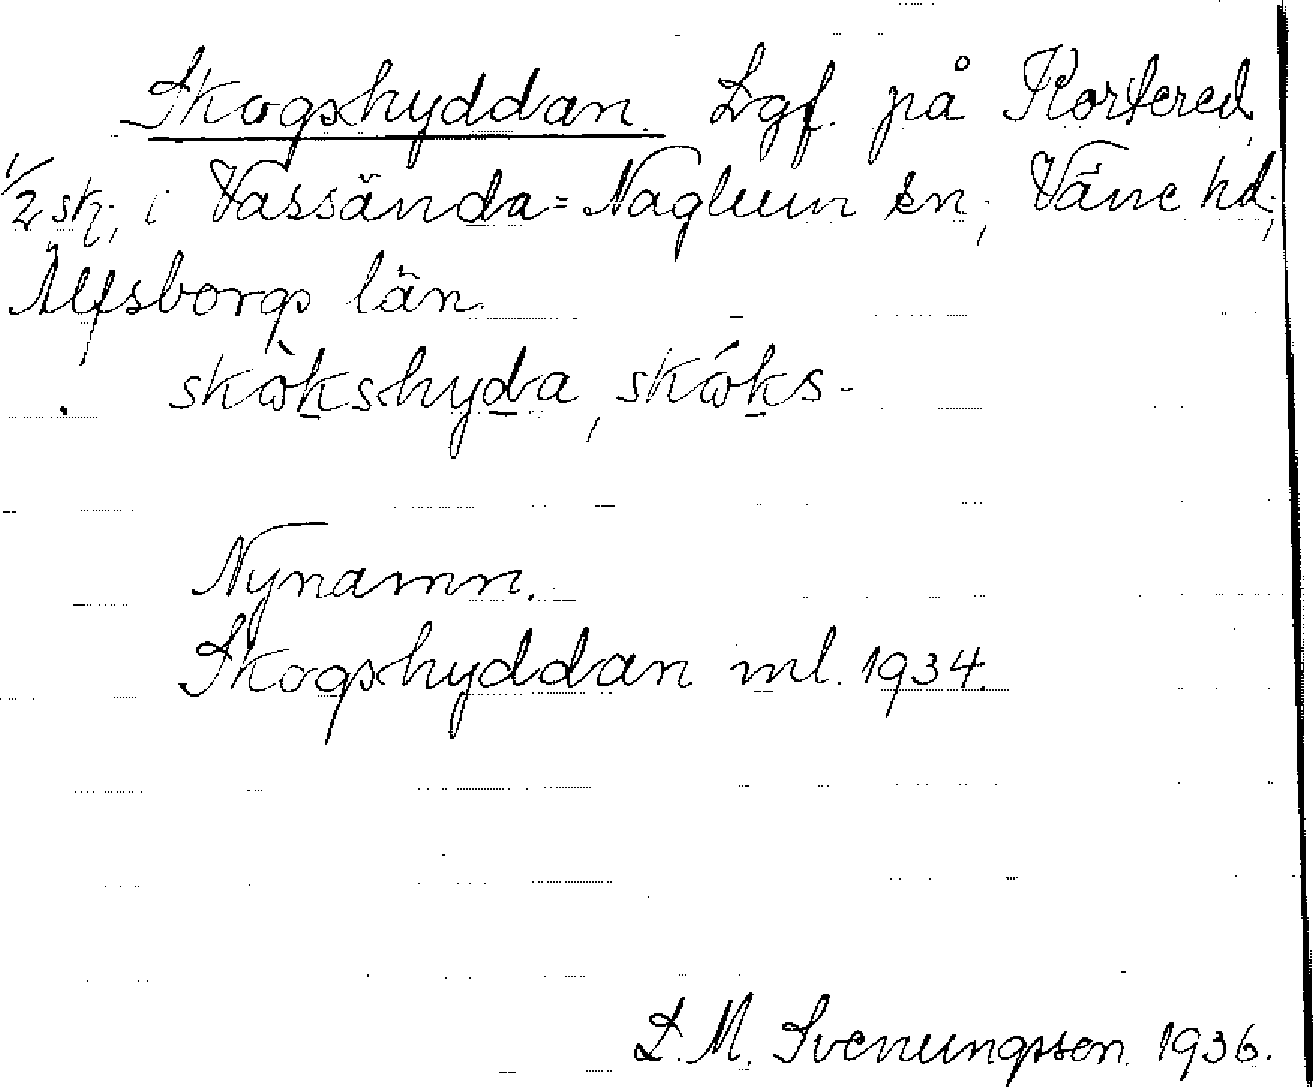 Skogshyddan Lgf. på Kortered
1/2 sk, i Vassända=Naglum sn, Väne hd,
Älfsborgs län
skòkshyda, skóks-
Nynamn.
Skogshyddan ml. 1934.
L. M. Svenungsson 1936.